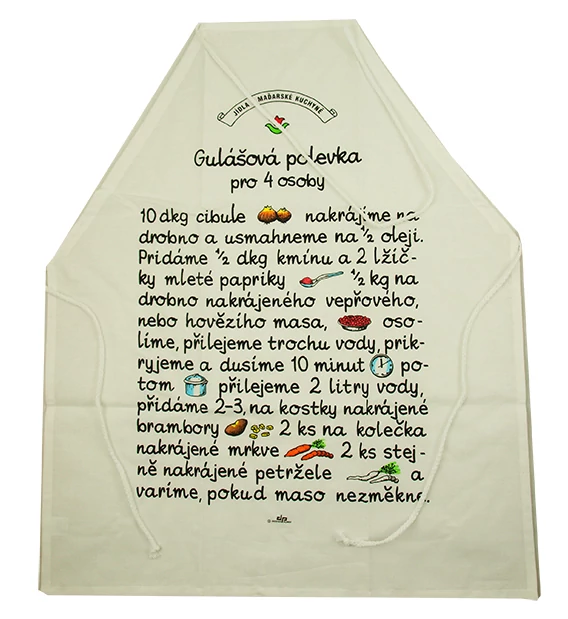 JÍDLA MAĎARSKÉ KUCHYNĚ
Gulášová polevka
pro 4 osoby
10 dkg cibule nakrájíme na
drobno a usmahneme na ½ oleji.
Pridáme ½ dkg kmínu a 2 lžíč-
ky mleté papriky ½ kg na
drobno nakrájeného vepřového,
nebo hovězího masa, oso-
líme, přilejeme trochu vody, prik-
ryjeme a dusíme 10 minut po-
tom přilejeme 2 litry vody,
přidáme 2-3, na kostky nakrájené
brambory 2 ks na kolečka
nakrájené mrkve 2 ks stej-
ně nakrájené petržele a
varíme, pokud maso nezměkne.